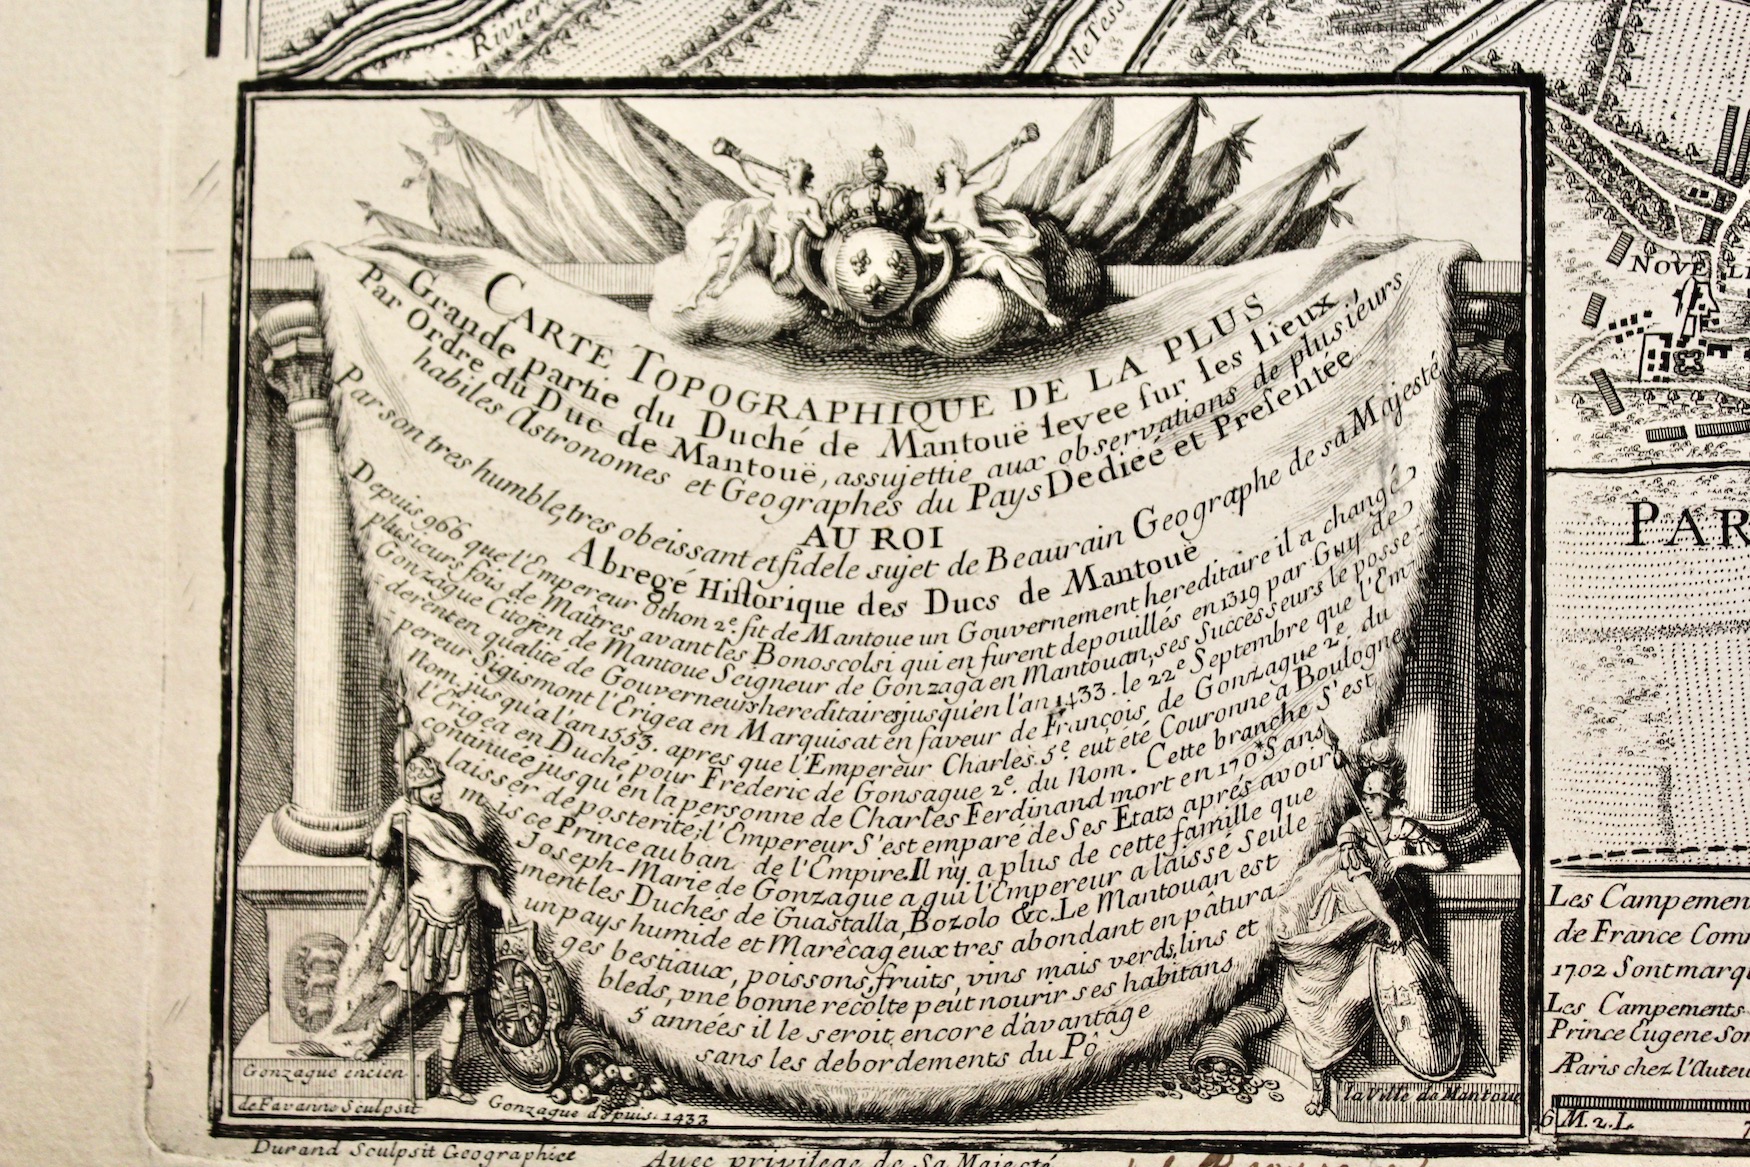 Riviere
le Tess
CARTE TOPOGRAPHIQUE DE LA PLUS
Grande partie du Duché de Mantouë levee sur les lieux
Par Ordre du Duc de Mantouë, assujettie aux observations de plusieurs
habiles Astronomes et Geographes du Pays Dediée et Presentée
AU ROI
Par son tres humble, tres obeissant et fidele sujet de Beaurain Geographe de sa Majesté
Abregé Historique des Ducs de Mantouë
Depuis 966 que l'Empereur Othon 2e. fit de Mantoue un Gouvernement hereditaire il a changé
plusieurs fois de Maîtres avant les Bonoscolsi qui en furent depouillés en 1319 par Guy de
Gonzague Citoyen de Mantoue Seigneur de Gonzaga en Mantouan, ses Successeurs le posse-
derent en qualité de Gouverneurs hereditaires jusqu'en l'an 1433. le 22e Septembre que l'Em-
pereur Sigismont l'Erigea en Marquisat en faveur de François de Gonzague 2e. du
Nom, jusqu'a l'an 1553. apres que l'Empereur Charles. 5e. eut été Couronné a Boulogne
l'Erigea en Duché pour Frederic de Gonsague 2e. du Nom. Cette branche S'est
continuée jusqu'en la personne de Charles Ferdinand mort en 170* Sans
laisser de posterité; l'Empereur S'est emparé de Ses Etats aprés avoir
mis ce Prince au ban de l'Empire. Il n'y a plus de cette famille que
Joseph-Marie de Gonzague a qui l'Empereur a laissé Seule
ment les Duchés de Guastalla, Bozolo &c. Le Mantouan est
un pays humide et Marêcageux tres abondant en pâtura
ges bestiaux, poissons, fruits, vins mais verds, lins et
bleds, une bonne récolte peut nourir ses habitans
5 années il le seroit encore d'avantage
sans les debordements du Pô
Gonzague encien
de Favanne Sculpsit
Gonzague depuis. 1433
la Ville de Mantoue
Durand Sculpsit Geographice
Avec privilege de Sa Majesté
NOVELL
PAR
Les Campemen
de France Com
1702 Sont marq
Les Campements
Prince Eugene Son
A Paris chez l'Auteu
6 M. 2. L.
7